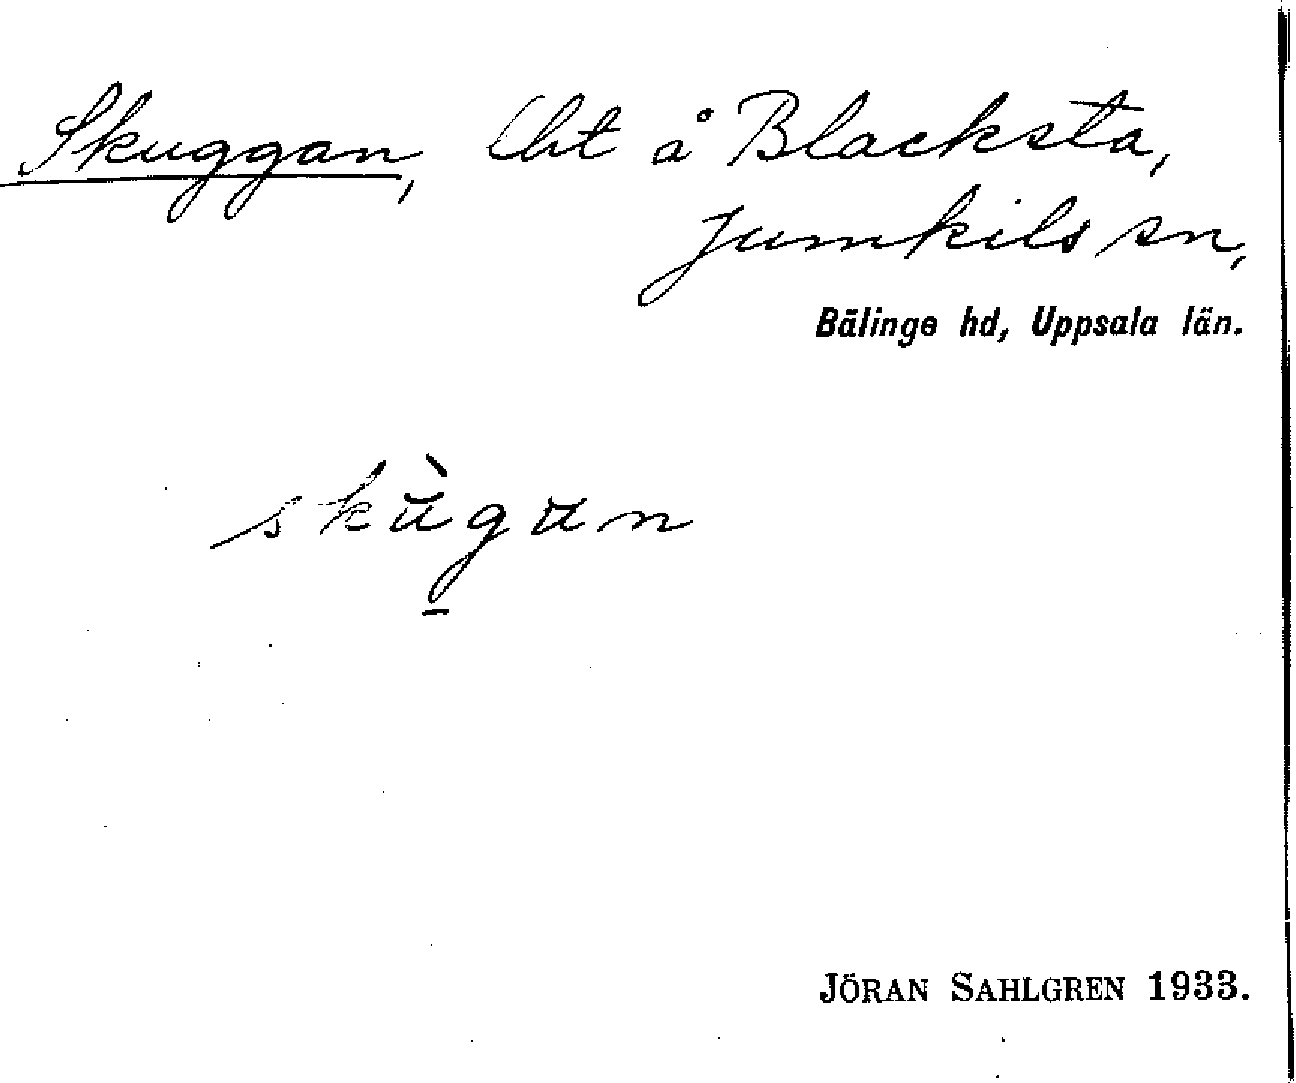 Skuggan, lht å Blacksta,
Jumkils sn,
Bälinge hd, Uppsala län.
skùgan
JÖRAN SAHLGREN 1933.